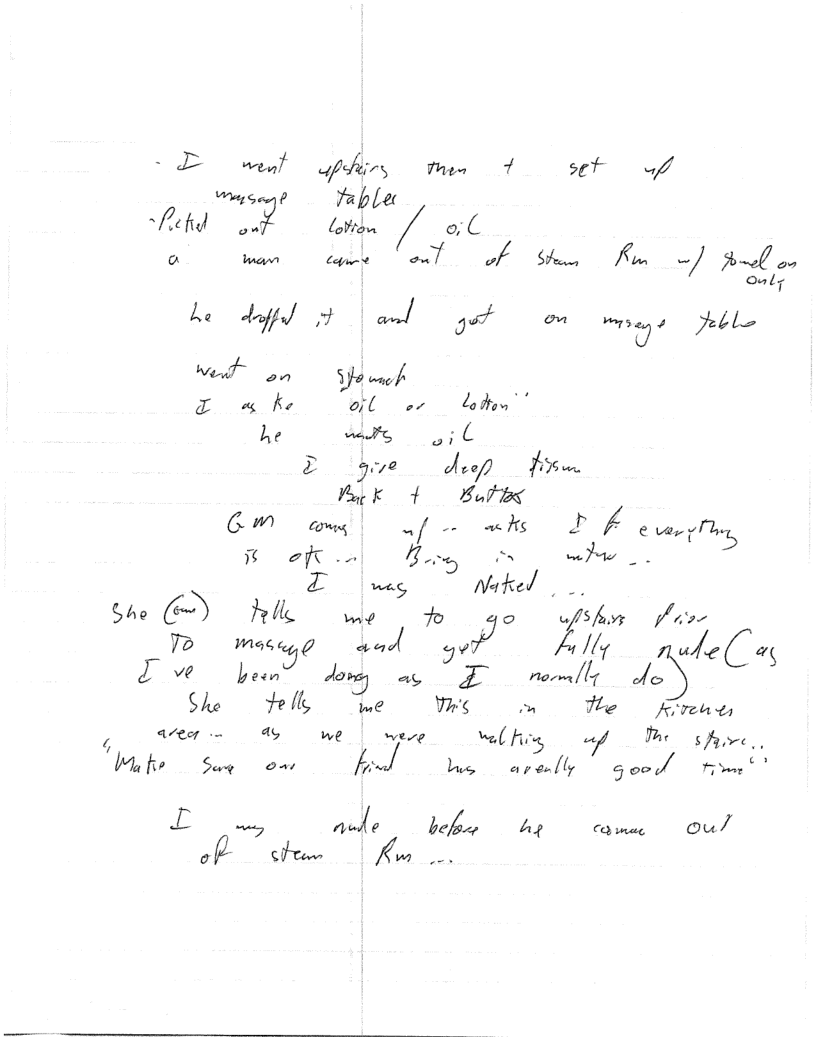 - I went upstairs then + set up
massage tables
- Picked out lotion / oil
a man came out of steam Rm w/ towel on
only
he dropped it and got on massage table
went on stomach
I asks oil or lotion"
he wants oil
I give deep tissue
Back + Buttox
GM comes up -- asks I if everything
is ok... Bring in
I was Naked ...
She (GM) tells me to go upstairs Prior
To massage and get fully nude (as
I've been doing as I normally do)
She tells me this in the kitchen
area -- as we were walking up the stairs..
"Make sure our friend has a really good time"
I was nude before he comes out
of steam Rm ...